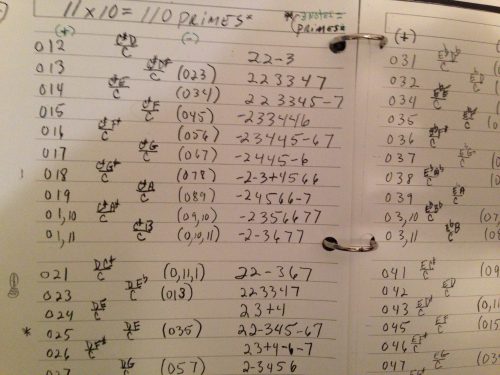 11 x 10 = 110 PRIMES*
*(3 NOTES = PRIMES*
(+) (-)
012 C#D/C 22-3
013 C#D#/C (023) 223347
014 C#E/C (034) 223345-7
015 C#F/C (045) -233446
016 C#F#/C (056) -23445-67
017 C#G/C (067) -2445-6
018 C#G#/C (078) -2-3+4566
019 C#A/C (089) -24566-7
01,10 C#A#/C (09,10) -2356677
01,11 C#B/C (0,10,11) -2-3677
021 DC#/C (0,11,1) 22-367
023 DEb/C (013) 223347
024 DE/C 23+4
* 025 (035) 22-345-67
026 DF#/C 23+4-6-7
027 DG/C (057) 2-3456
(+)
031 EbDb/C
032 EbD/C
034 EbE/C
035
036
037 EbG/C
038 EbAb/C
039
03,10
03,11 EbB/C
041 EC#/C
042 ED/C
043
045 EF/C
046 EF#/C
047 EG/C